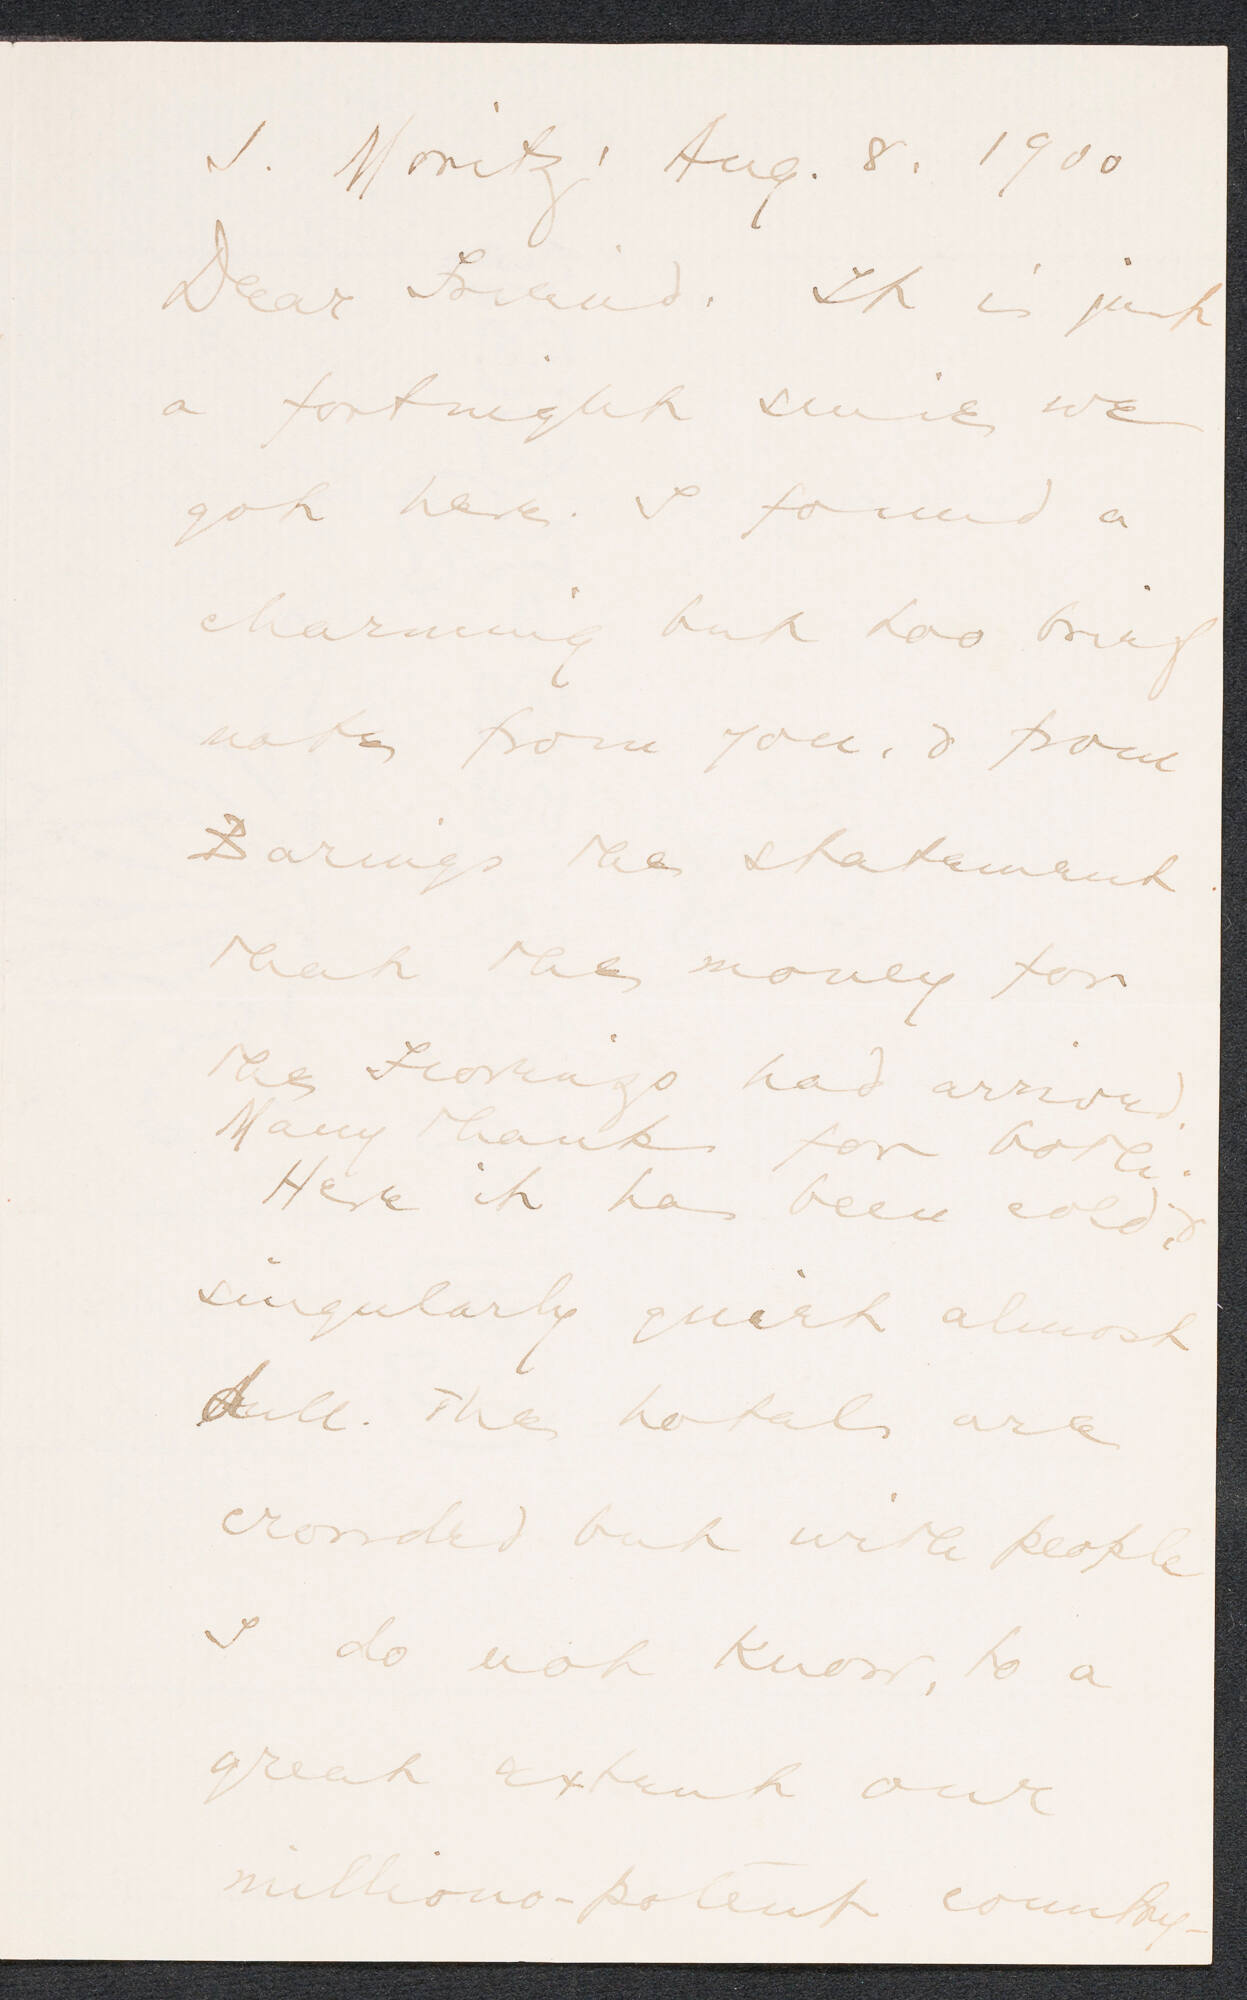 S. Moritz, Aug. 8. 1900
Dear Friend. It is just
a fortnight since we
got here. I found a
charming but too brief
note from you, & from
Barings the statement
that the money for
the Fiorenzo had arrived.
Many thanks for both.
Here it has been cold, &
singularly quiet almost
dull. The hotels are
crowded but with people
I do not know, to a
great extent our
milliono-potent country-